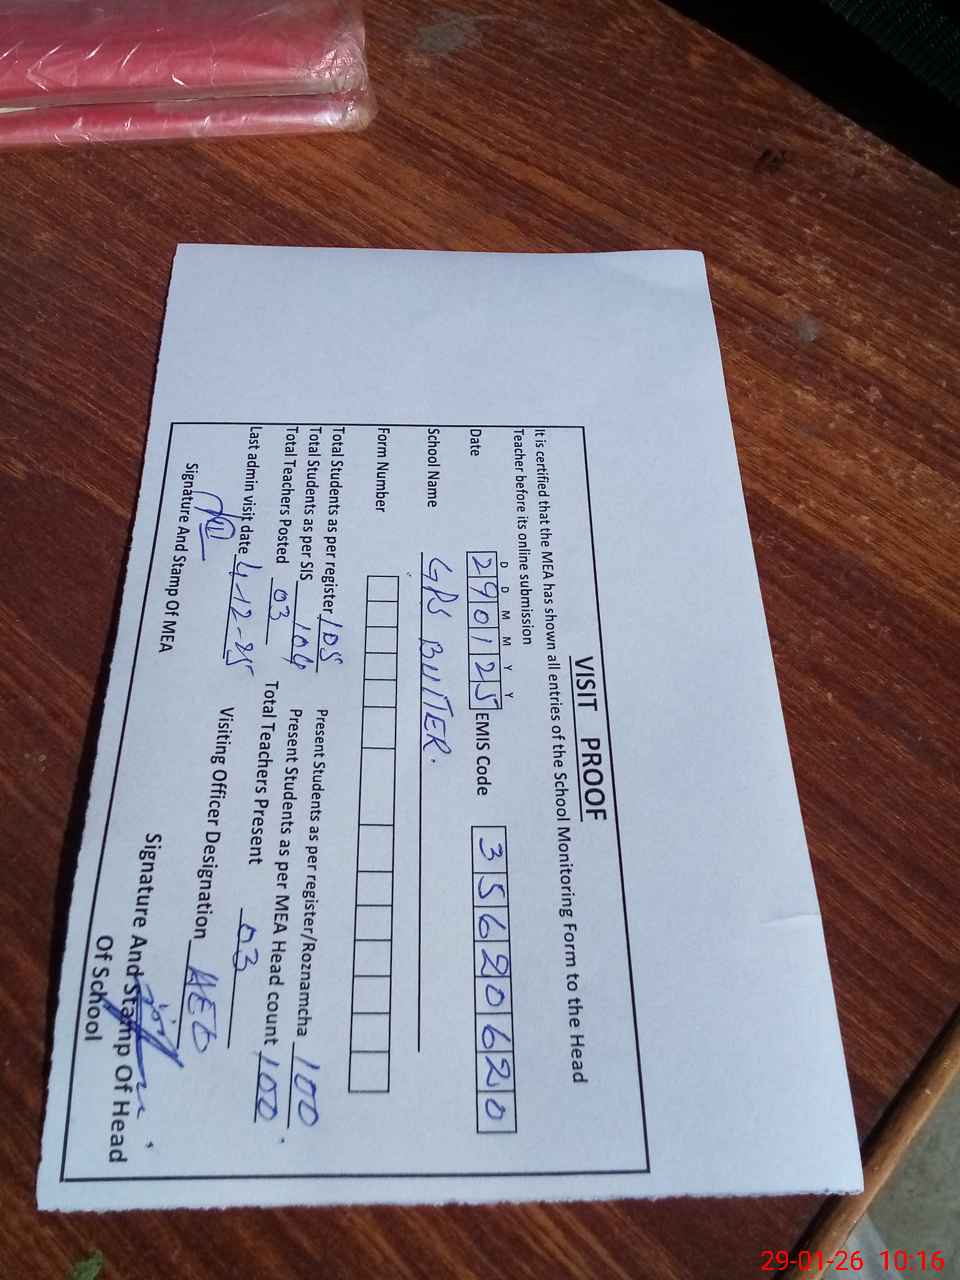 VISIT PROOF
It is certified that the MEA has shown all entries of the School Monitoring Form to the Head
Teacher before its online submission
D D M M Y Y
Date 290125 EMIS Code 35620620
School Name GPS BUITER.
Form Number
Total Students as per register 105 Present Students as per register/Roznamcha 100
Total Students as per SIS 104 Present Students as per MEA Head count 100
Total Teachers Posted 03 Total Teachers Present 03
Last admin visit date 4-12-25 Visiting Officer Designation AEO
Signature And Stamp Of MEA
Signature And Stamp Of Head
Of School
29-01-26 10:16